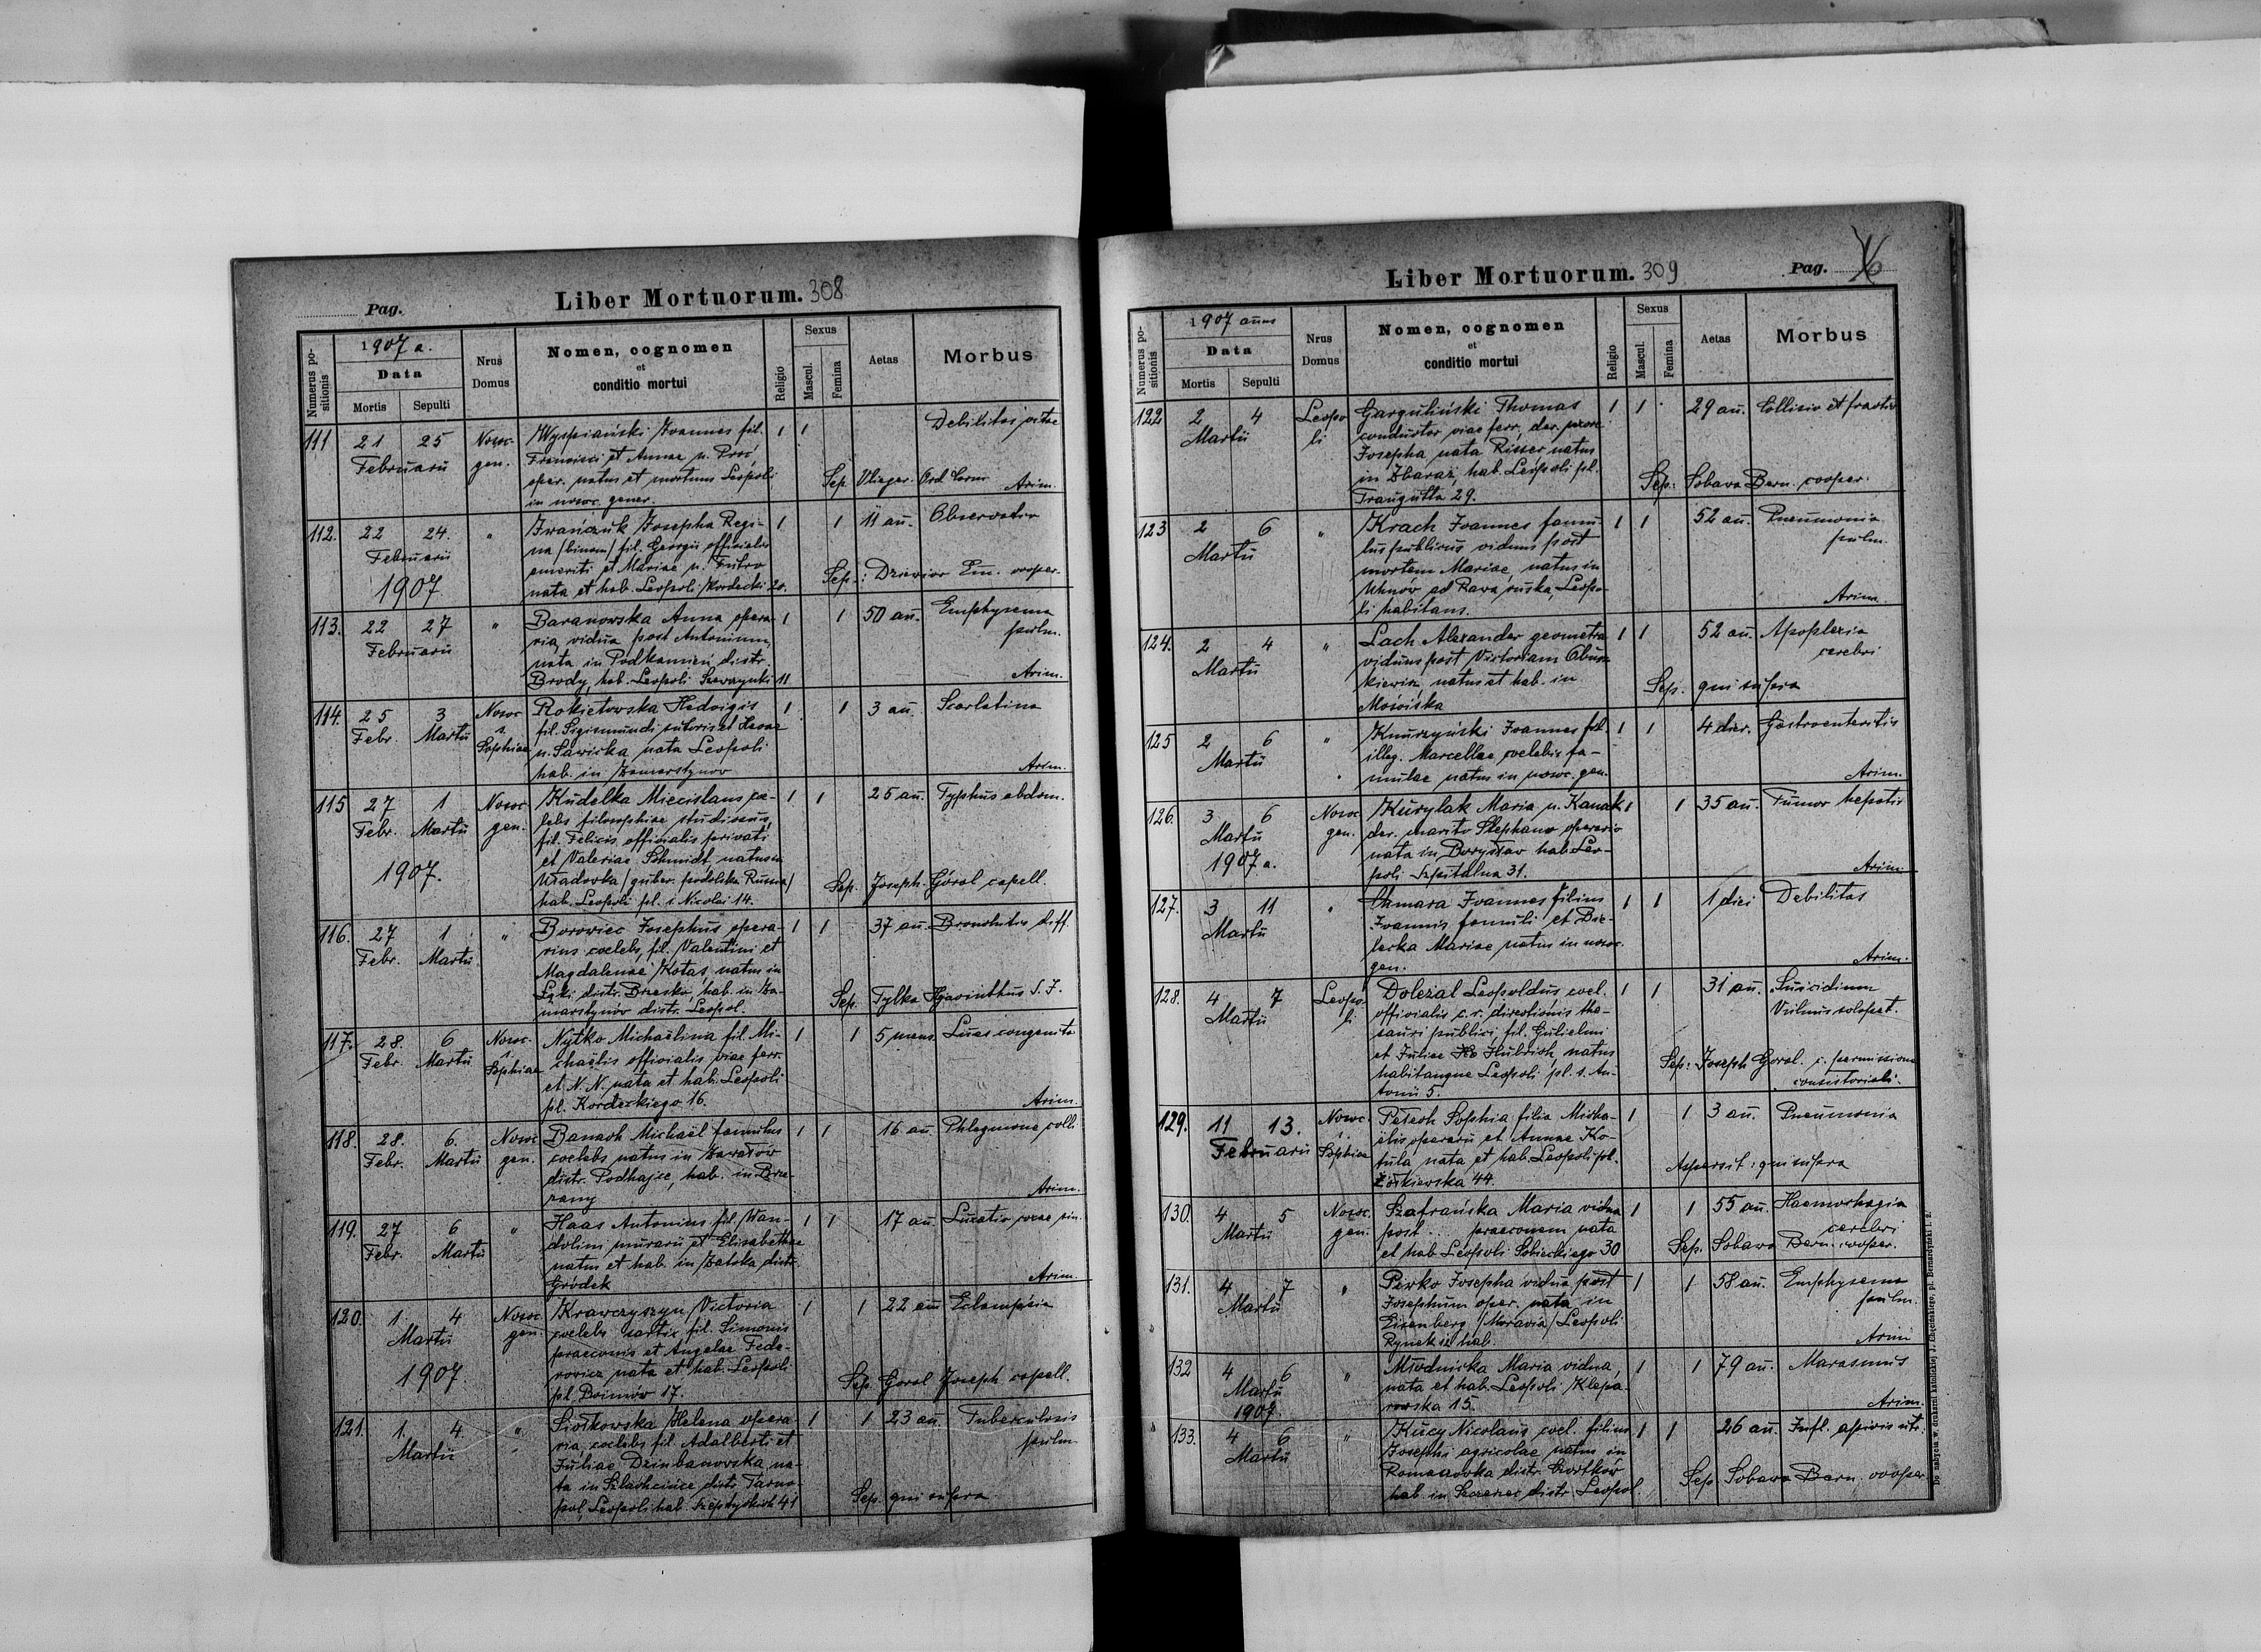 Pag.
Liber Mortuorum. 308
Numerus po-
sitionis
1907 a.
Data
Mortis Sepulti
Nrus
Domus
Nomen, cognomen
et
conditio mortui
Religio
Sexus
Mascul.
Femina
Aetas
Morbus
111 21 25 Nosoc. Wyspiański Joannes fil. 1 1 Debilitas vitae
Februarii gen. Francisci et Annae n.
oper. natus et mortuus Leopoli Sep. Arim.
in nosoc. gener.
112. 22 24. " Iwańczuk Josepha Regi- 1 1 11 an. Observatio
Februarii na /binom/ fil. Georgii officialis
emeriti et Mariae n. Futro
1907 nata et hab. Leopoli Kordecki 20. Sep.: cooper.
113. 22 27 " Baranowska Anna opera- 1 1 50 an. Emphysema
Februarii ria, vidua post Antonium, pulm.
nata in Podkamień, distr.
Brody, hab. Leopoli 11 Arim.
114. 25 3 Nosoc. Rokietowska Hedvigis 1 1 3 an. Scarlatina
Febr. Martii s. fil. Sigismundi sutoris et
Sophiae n. Sawicka nata Leopoli
hab. in Zamarstynov Arim.
115 27 1 Nosoc. Kudelka Miecislaus coe- 1 1 25 an. Typhus abdom.
Febr. Martii gen. lebs filosophiae studiosus,
fil. Felicis officialis privati
1907. et Valeriae Schmidt, natus in
/guber. podolska Russia/ Sep. Joseph. Góral capell.
hab. Leopoli pl. s. Nicolai 14.
116. 27 1 " Borowiec Josephus opera- 1 1 37 an. Bronchitis diff.
Febr. Martii rius coelebs, fil. Valentini et
Magdalenae Kotas, natus in
Łęki distr. Brzesko, hab. in Za- Sep. Tylka Hyacinthus S. J.
marstynów distr. Leopol.
117. 28. 6 Nosoc. Nytko Michaëlina fil. Mi- 1 1 5 mens. Lues congenita
Febr. Martii s. chaëlis officialis viae ferr.
Sophiae et N. N. nata et hab. Leopoli
pl. Kordeckiego 16. Arim.
118. 28. 6. Nosoc. Banach Michaël famulus 1 1 16 an. Phlegmone colli
Febr. Martii gen. coelebs natus in
distr. Podhajce, hab. in Brze-
zany Arim.
119. 27 6 " Haas Antonius fil. Wan- 1 1 17 an. Luxatio coxae sin.
Febr. Martii dolini murarii et Elisabethae
natus et hab. in distr.
Gródek Arim.
120. 1. 4 Nosoc. Krawczyszyn Victoria 1 1 22 an. Eclampsia
Martii gen. coelebs sartrix fil. Simonis
praeconis et Angelae Fede-
1907. rowicz nata et hab. Leopoli Sep. Goral Joseph capell.
pl. Boimów 17.
121. 1. 4. " Siotkowska Helena opera- 1 1 23 an. Tuberculosis
Martii ria coelebs fil. Adalberti et pulm.
Juliae Dziubanowska na-
ta in distr. Tarno- Sep. qui supra
pol, Leopoli hab. Szeptyckich 41
Liber Mortuorum. 309
Pag.
Numerus po-
sitionis
1907 annus
Data
Mortis Sepulti
Nrus
Domus
Nomen, cognomen
et
conditio mortui
Religio
Sexus
Mascul.
Femina
Aetas
Morbus
122 2 4 Leopo- Garguliński Thomas 1 1 29 an. Collisio et fractio
Martii li conductor viae ferr, der. uxore
Josepha nata Risser natus
in Zbaraż, hab. Leopoli pl. Sep: Sobawa Bern. cooper.
Traugutta 29.
123 2 6 " Krach Joannes famu- 1 1 52 an. Pneumonia
Martii lus publicus viduus post pulm.
mortem Mariae, natus in
Uhnów ad Rava ruska, Leopo-
li habitans. Arim.
124. 2 4 " Lach Alexander geometra 1 1 52 an. Apoplexia
Martii viduus post Victoriam cerebri
kiewicz natus et hab. in Sep. qui supra
Mościska
125 2 6 " Knurzyński Joannes fil. 1 1 4 dier. Gastroenteritis
Martii illeg. Marcellae coelebis fa-
mulae natus in nosoc. gen. Arim.
126. 3 6 Nosoc. Kurylak Maria n. Kanak 1 1 35 an. Tumor hepatis
Martii gen. der. marito Stephano operario
1907 a. nata in Borysław hab. Leo-
poli Szpitalna 31. Arim.
127. 3 11 " Joannes filius 1 1 1 diei Debilitas
Martii Joannis famuli et Bie-
lecka Mariae natus in nosoc.
gen. Arim.
128. 4 7 Leopo- Doleżal Leopoldus coel. 1 1 31 an. Suicidium
Martii li officialis c. r. directionis the- Vulnus solopet.
sauri publici, fil. Gulielmi
et Juliae Hubrich, natus Sep: Joseph Goral. c. permissione
habitansque Leopoli pl. s. An- consistoriali.
tonii 5.
129. 11 13. Nosoc. Petech Sophia filia Micha- 1 1 3 an. Pneumonia
Februarii s. ëlis operarii et Annae Ko-
Sophiae tula nata et hab. Leopoli pl. Aspersit: qui supra
Żółkiewska 44.
130. 4 5 Nosoc. Szafrańska Maria vidua 1 1 55 an. Haemorhagia
Martii gen. post . . praeconem nata cerebri
et hab. Leopoli Sobieckiego 30 Sep. Sobawa Bern. cooper.
131. 4 7 " Perko Josepha vidua post 1 1 58 an. Emphysema
Martii Josephum oper. nata in pulm.
Eisenberg /Moravia/ Leopoli
Rynek hab. Arim
132 4 6 " Młodnicka Maria vidua, 1 1 79 an. Marasmus
Martii nata et hab. Leopoli Klepa-
1907. rowska 15. Arim.
133. 4 6 " Kucy Nicolaus coel. filius 1 1 26 an. Infl. apicis utr.
Martii Josephi agricolae, natus in
Romanovka distr. Czortków
hab. in Szczerzec distr. Leopol. Sep. Sobawa Bern. cooper.
Do nabycia w drukarni katolickiej J. Chęcińskiego, pl. Bernardyński l. 2.